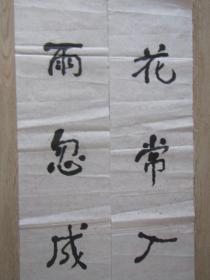 花常
雨忽成